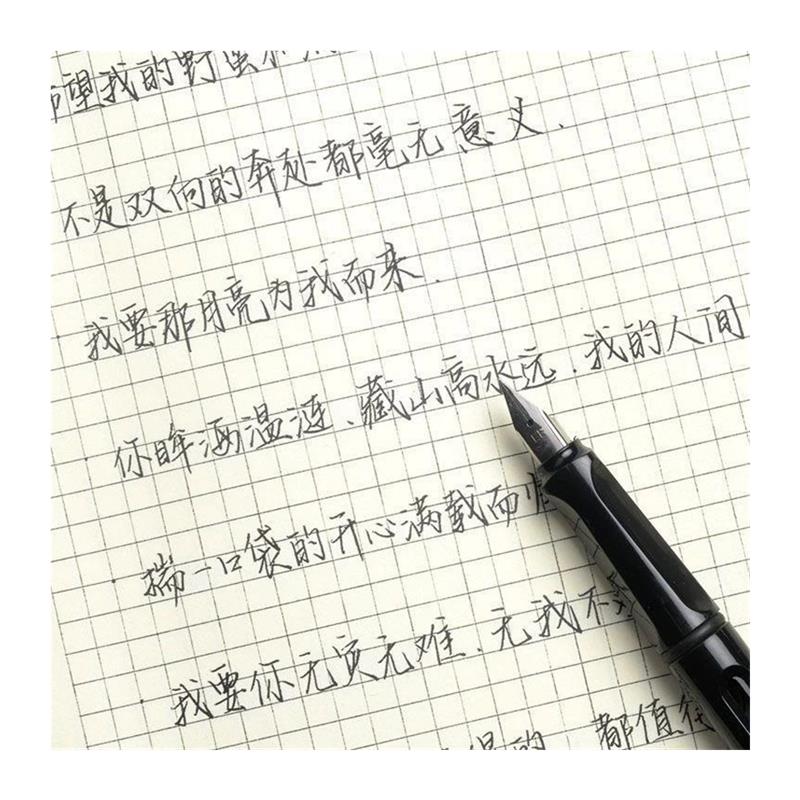 望我的野蛮
不是双向的奔赴都毫无意义.
我要那月亮为我而来.
你眸涵温涟、藏山高水远.我的人间
揣一口袋的开心满载而归
我要你无灾无难、无我不
得的 都值